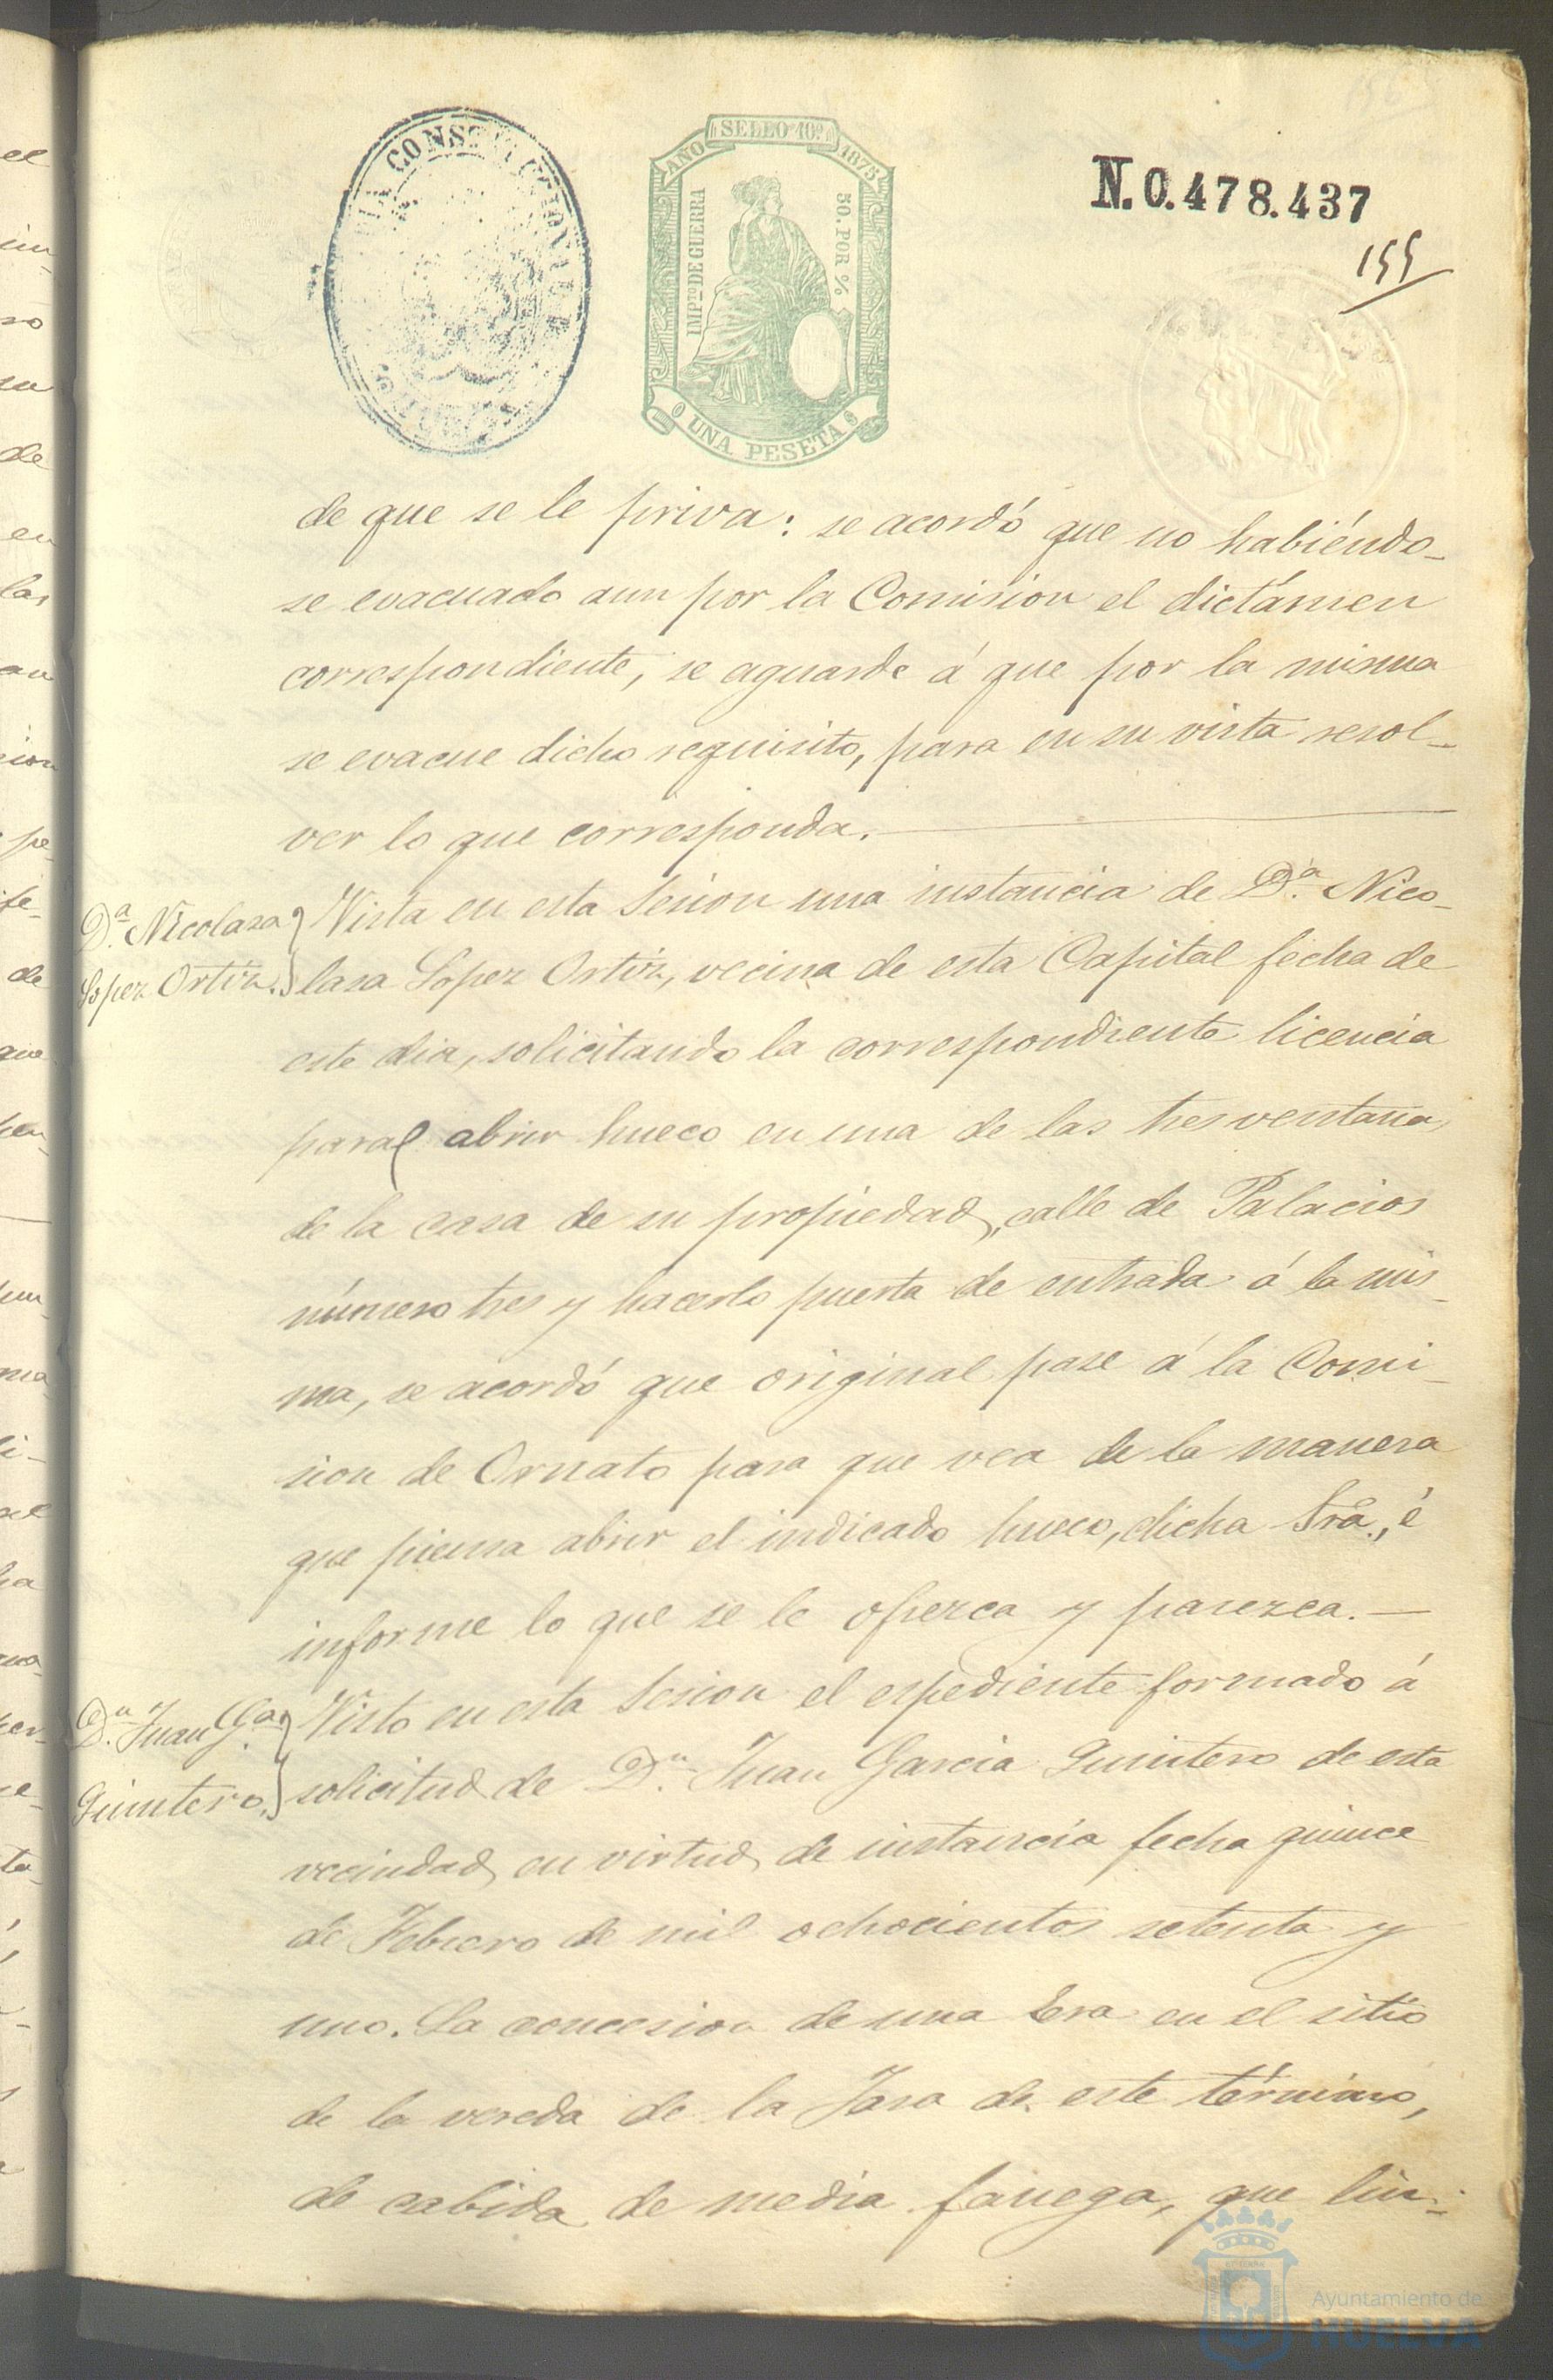 ALCALDIA CONSTITUCIONAL DE HUELVA
SELLO 10º
AÑO 1875
IMPTO DE GUERRA
50. POR %
UNA PESETA
N.0.478.437
155
de que se le priva: se acordó que no habiéndo-
se evacuado aun por la Comision el dictámen
correspondiente, se aguarde á que por la misma
se evacue dicho requisito, para en su vista resol-
ver lo que corresponda.
Dª. Nicolasa
Lopez Ortiz.
Vista en esta Sesion una instancia de Dª. Nico-
lasa Lopez Ortiz, vecina de esta Capital fecha de
este dia, solicitando la correspondiente licencia
para abrir hueco en una de las tres ventanas
de la casa de su propiedad, calle de Palacios
número tres y hacerlo puerta de entrada á la mis-
ma, se acordó que original pase á la Comi-
sion de Ornato para que vea de la manera
que piensa abrir el indicado hueco, dicha Sra., é
informe lo que se le ofrezca y parezca.—
Dn. Juan Ga.
Quintero.
Visto en esta Sesion el espediente formado á
solicitud de Dn. Juan Garcia Quintero de esta
vecindad en virtud de instancia fecha quince
de Febrero de mil ochocientos setenta y
uno. La concesion de una Era en el sitio
de la vereda de la Jara de este término,
de cabida de media fanega, que lin-
Ayuntamiento de
HUELVA